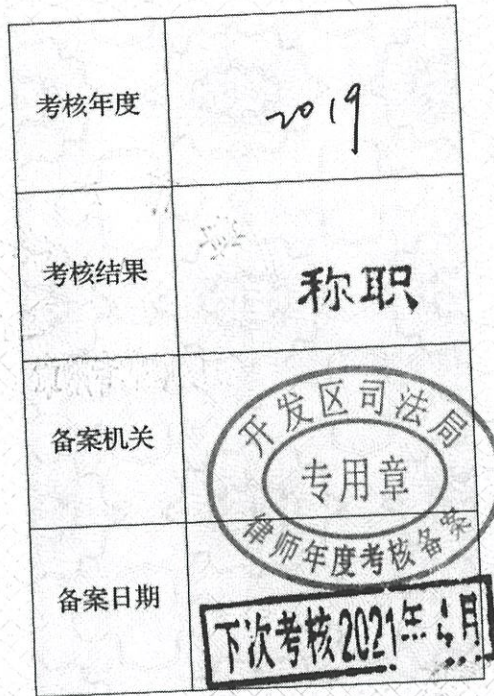 考核年度
2019
考核结果
称职
备案机关
开发区司法局
专用章
律师年度考核备案
备案日期
下次考核2021年 月